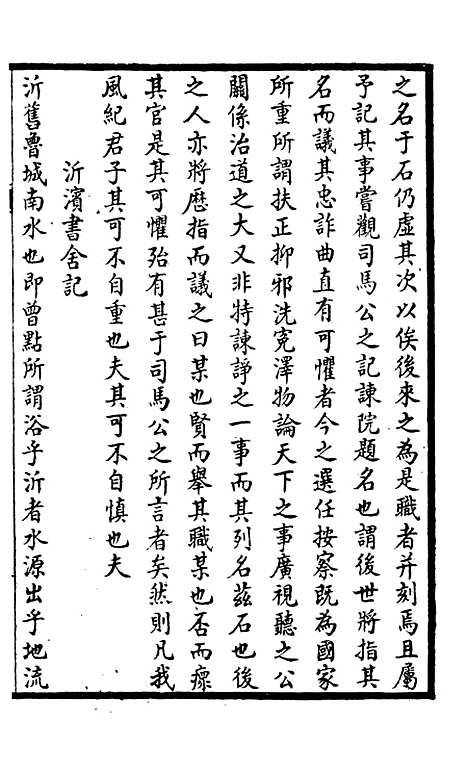 之名于石仍虛其次以俟後來之為是職者并刻焉且屬
予記其事嘗觀司馬公之記諫院題名也謂後世將指其
名而議其忠詐曲直有可懼者今之選任按察既為國家
所重所謂扶正抑邪洗冤澤物論天下之事廣視聽之公
關係治道之大又非特諫諍之一事而其列名茲石也後
之人亦將歷指而議之曰某也賢而舉其職某也否而瘝
其官是其可懼殆有甚于司馬公之所言者矣然則凡我
風紀君子其可不自重也夫其可不自慎也夫
沂濱書舍記
沂舊魯城南水也即曾點所謂浴乎沂者水源出乎地流